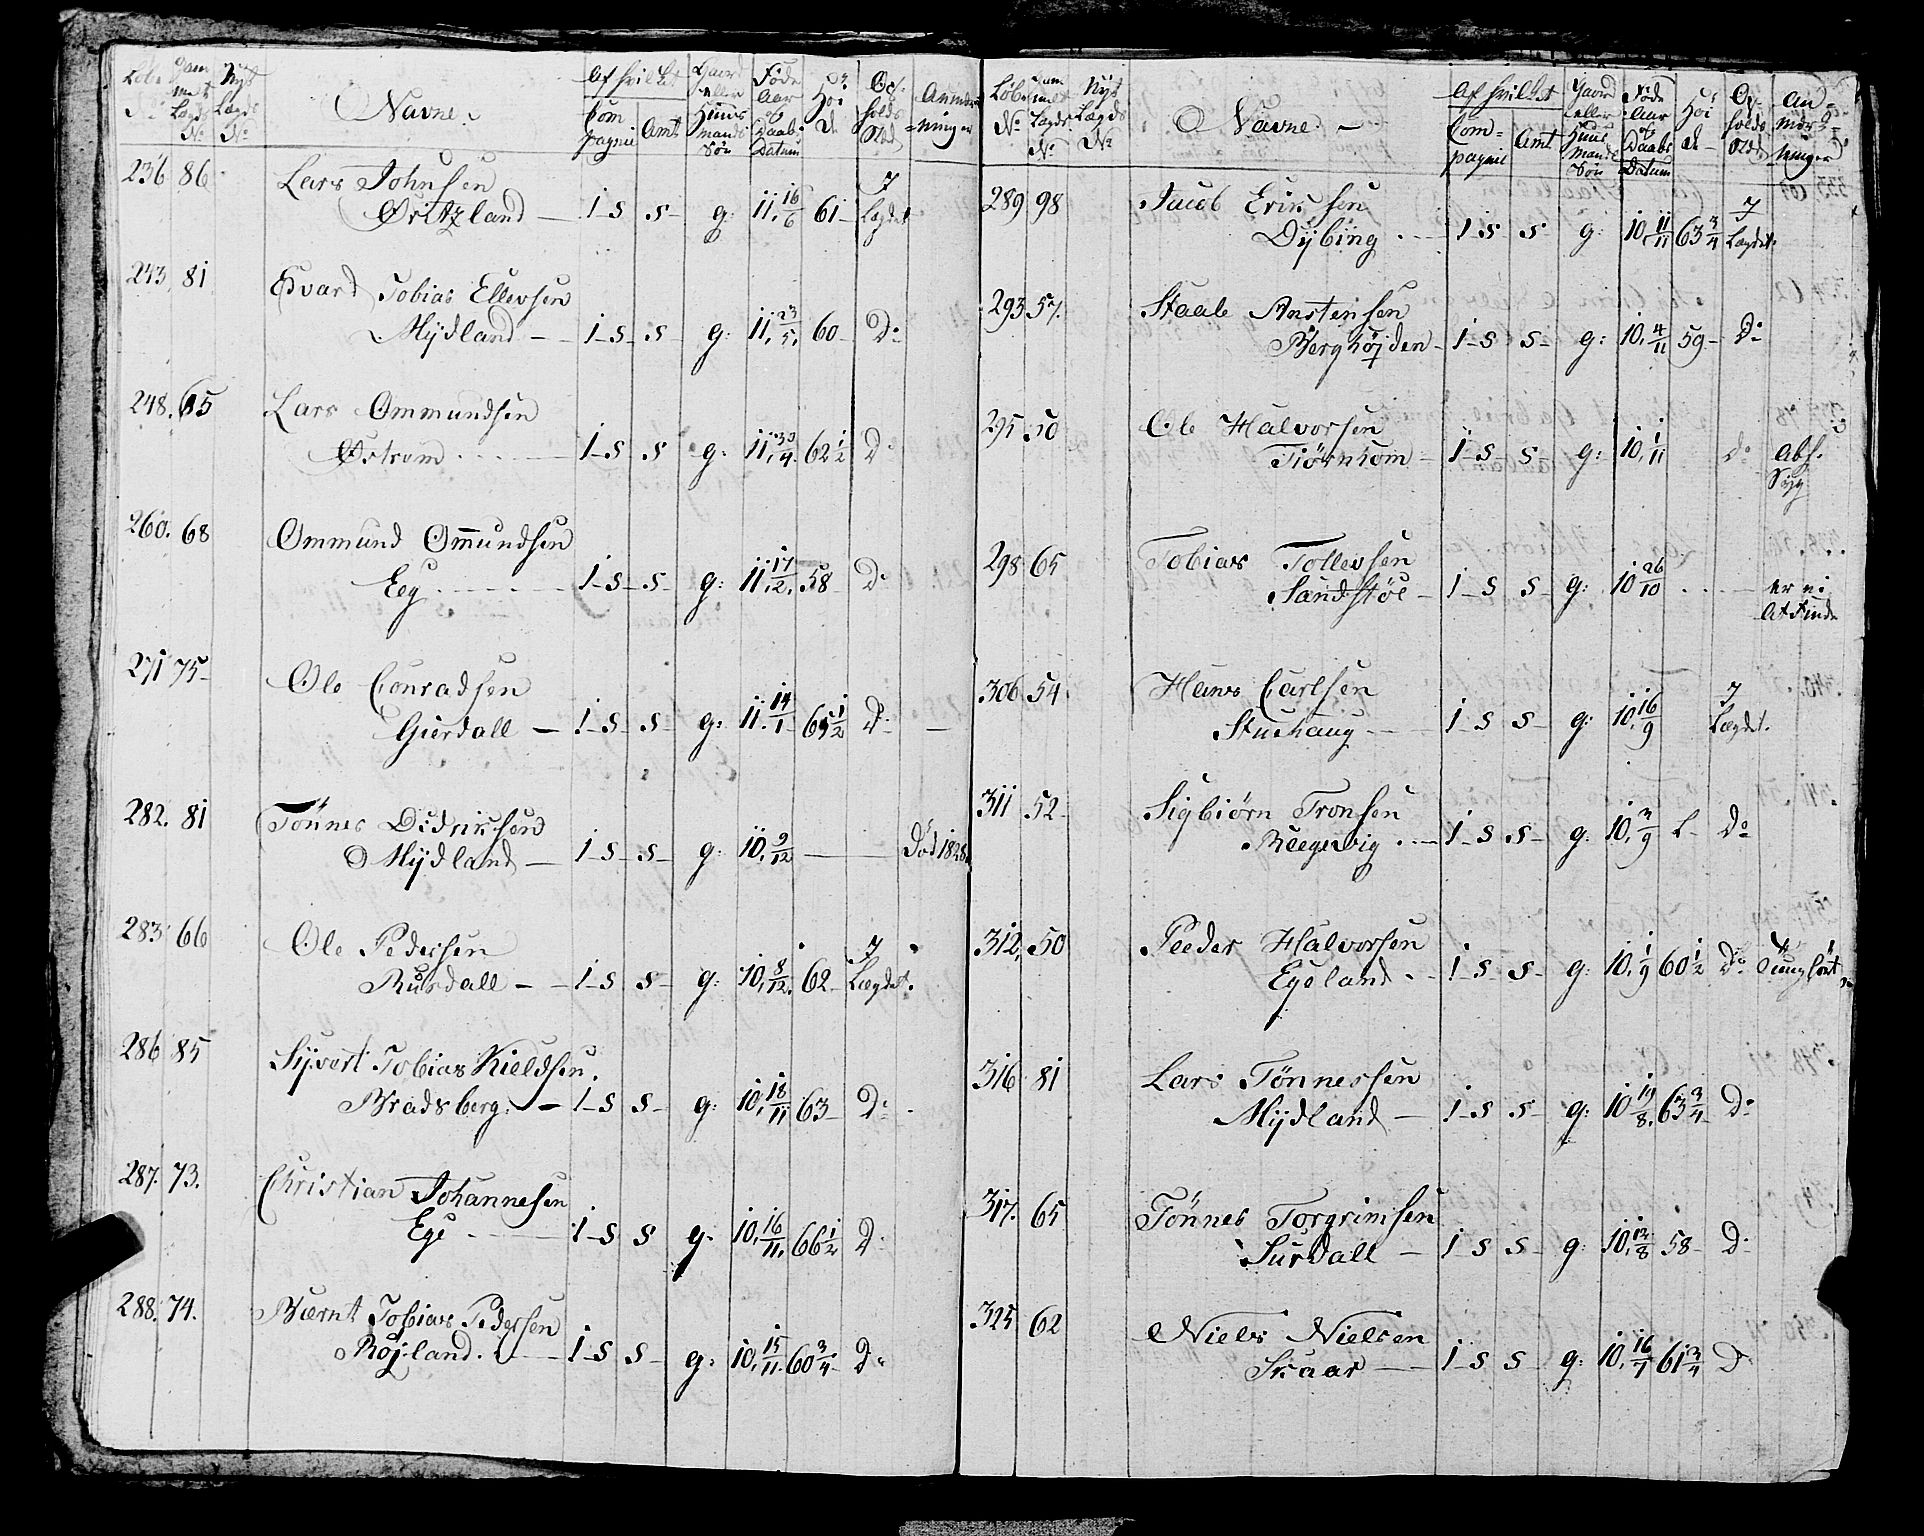 Løbe No Gammelt Lægds No Nyt Lægds No Navne. Af hvilket Compagnie Amt Gaard eller Huusmands Søn Føde Aar og Daabs Datum Høide Opholds Sted Anmærkninger
236 86 Lars Johnsen
Øritzland — 1-s s- g: 11. 16/6 61- I Lægdet
243. 81 Edvard Tobias Ellevsen
Mÿdland — 1-s- s- g: 11. 23/5. 60- Do
248. 65 Lars Ommundsen
Østrem 1-s- s g: 11. 30/4 62 1/2 Do
260. 68 Ommund Om̅undsen
Eeg 1-s- s- g: 11. 17/2. 58- Do
271 75- Ole Conradsen
Gierdall — 1-s- s- g: 11. 14/1 65 1/2 Do —
282. 81 Tönnes Didriksen
Mÿdland — 1-s- s- g: 10. 9/12 — — Död 1828.
283 66 Ole Pedersen
Rusdall — 1-s s- g: 10. 8/12. 62- I Lægdet.
286 85 Sÿvert Tobias Kieldsen.
Bradsberg. — 1-s s- g: 10. 18/11 63- Do
287. 73. Christian Johannesen
Ege 1-s s g- 10. 16/11. 66 1/2 Do
288. 74. Bærnt Tobias Pedersen
Røÿland. 1-s s- g: 10. 15/11. 60 3/4 Do
Løbe No Gammelt Lægds No Nyt Lægds No Navne. — Af hvilket Compagnie Amt Gaard eller Huus Mands Søn Føde Aar og Daabs Datum Høide Opholds Sted Anmærkninger
289 98 Jacob Eriksen
Dÿbing 1-s s g: 10. 11/11 63 3/4 I Lægdet.
293 57. Staale Anstensen
Berghöjden- 1-s s- g: 10. 4/11 59- Do
295 50 Ole Halvorsen
Tiörnhom — 1-s- s- g: 10. 1/11 do abs. Syg
298 65 Tobias Tollevsen
Sandstöe — 1-s s- g: 10 26/10 er ei At Finde
306 54 Hans Carlsen
Stuehaug 1-s s- g: 10. 16/9 I Lægdet.
311 52- Sigbiörn Tronsen
Reegevig 1-s s- g: 10. 3/9 L- Do
312. 50 Peeder Halvorsen
Egeland 1-s s- g: 10. 1/9 60 1/2 Do Tunghört
316 81 Lars Tönnessen
Mÿdland — 1-s s- g: 10 19/8. 63 3/4 Do
317. 65 Tönnes Torgrimsen
Surdall — 1-s s- g: 10. 12/8 58- Do
325 62 Niels Nielsen
Skaar — 1-s s g: 10. 16/7 61 3/4 Do